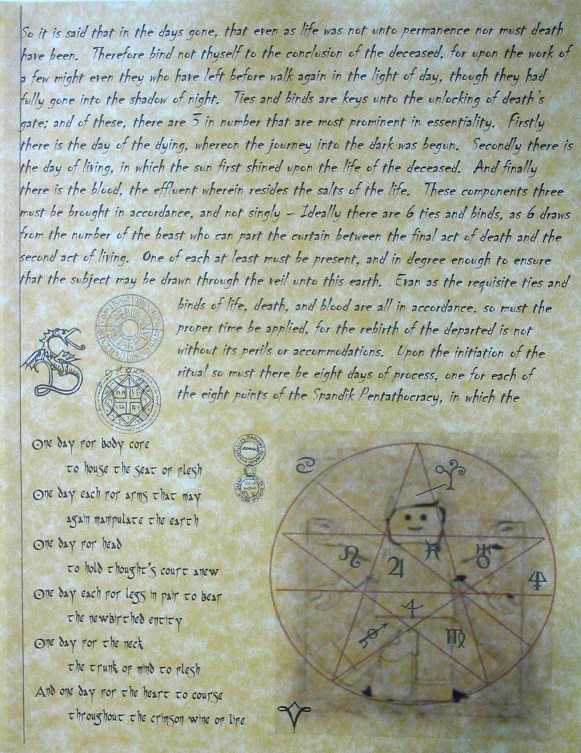 So it is said that in the days gone, that even as life was not unto permanence nor must death
have been. Therefore bind not thyself to the conclusion of the deceased, for upon the work of
a few might even they who have left before walk again in the light of day, though they had
fully gone into the shadow of night. Ties and binds are keys unto the unlocking of death's
gate; and of these, there are 3 in number that are most prominent in essentiality. Firstly
there is the day of the dying, whereon the journey into the dark was begun. Secondly there is
the day of living, in which the sun first shined upon the life of the deceased. And finally
there is the blood, the effluent wherein resides the salts of the life. These components three
must be brought in accordance, and not singly – Ideally there are 6 ties and binds, as 6 draws
from the number of the beast who can part the curtain between the final act of death and the
second act of living. One of each at least must be present, and in degree enough to ensure
that the subject may be drawn through the veil unto this earth. Evan as the requisite ties and
binds of life, death, and blood are all in accordance, so must the
proper time be applied, for the rebirth of the departed is not
without its perils or accommodations. Upon the initiation of the
ritual so must there be eight days of process, one for each of
the eight points of the Spandik Pentathocracy, in which the
One day for body core
to house the seat of flesh
One day each for arms that may
again manipulate the earth
One day for head
to hold thought's court anew
One day each for legs in pair to bear
the newbirthed entity
One day for the neck
the trunk of mind to flesh
And one day for the heart to course
throughout the crimson wine of life